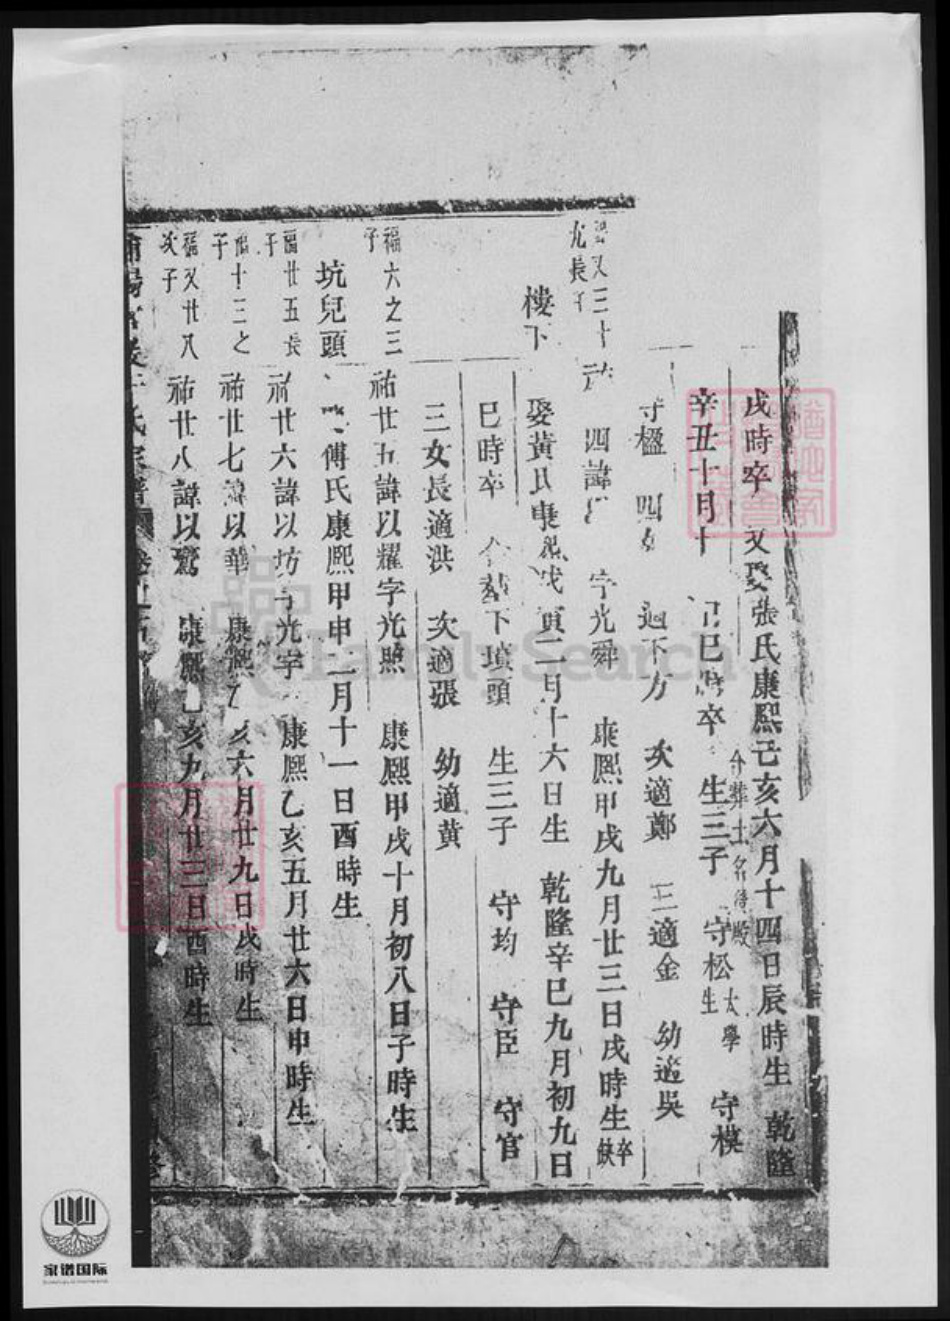 戌時卒 又娶張氏康熙己亥六月十四日辰時生 乾隆
辛丑十月十 巳時卒 合葬土名 生三子 守松太學生 守模
守楹 四女 適下方 次適鄭 三適金 幼適吳
九長子
四諱 字光舜 康熙甲戌九月廿三日戌時生卒缺
樓下
娶黃氏康熙戊寅二月十六日生 乾隆辛巳九月初九日
巳時卒 合葬下墳頭 生三子 守均 守臣 守官
三女長適洪 次適張 幼適黃
福六之三子
祐廿五諱以耀字光照 康熙甲戌十月初八日子時生
坑兒頭
傅氏康熙甲申二月十一日酉時生
福廿五長子
祐廿六諱以坊字光宇 康熙乙亥五月廿六日申時生
福十三之子
祐廿七諱以華 康熙乙亥六月廿九日戌時生
福又廿八次子
祐廿八諱以鸞 康熙乙亥九月廿三日酉時生
FamilySearch
家谱国际